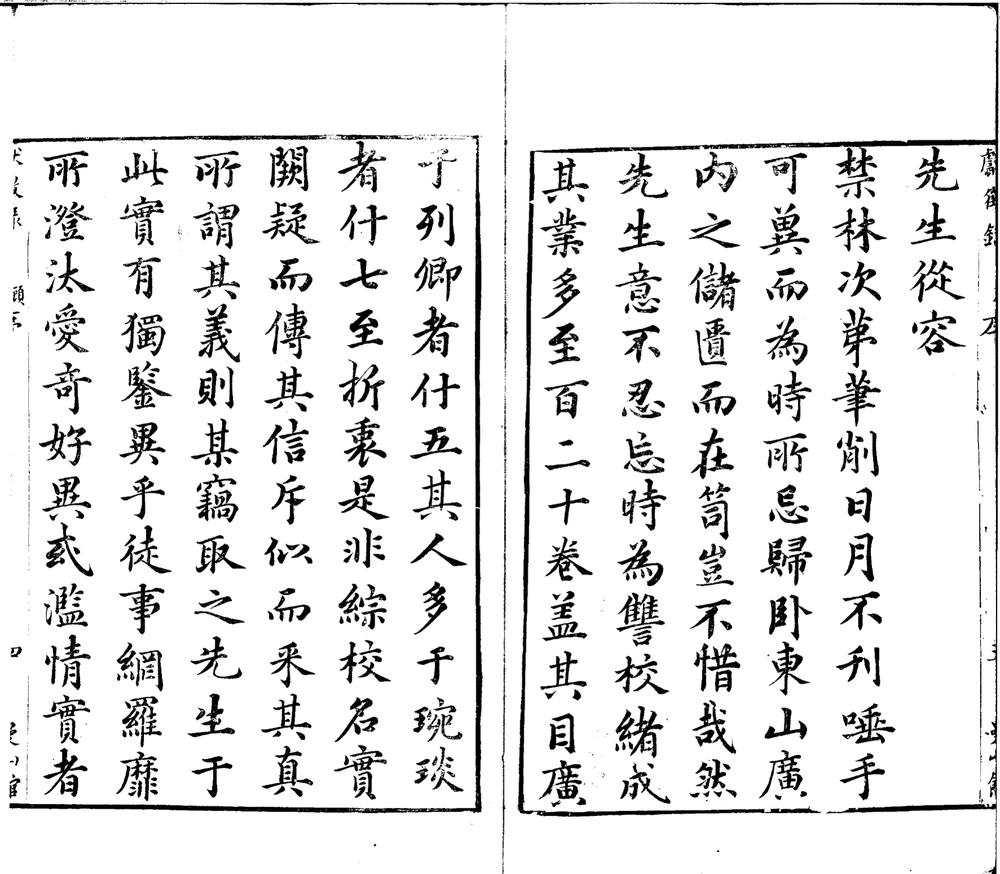 先生從容
禁林次苐筆削日月不刋唾手
可兾而為時所忌歸卧東山廣
内之儲匱而在笥豈不惜哉然
先生意不忍忘時為讐校緒成
其業多至百二十卷盖其目廣
于列卿者什五其人多于琬琰
者什七至折衷是非綜校名實
闕疑而傳其信斥似而采其真
所謂其義則某竊取之先生于
此實有獨鑒異乎徒事網羅靡
所澄汰愛奇好異或濫情實者
四